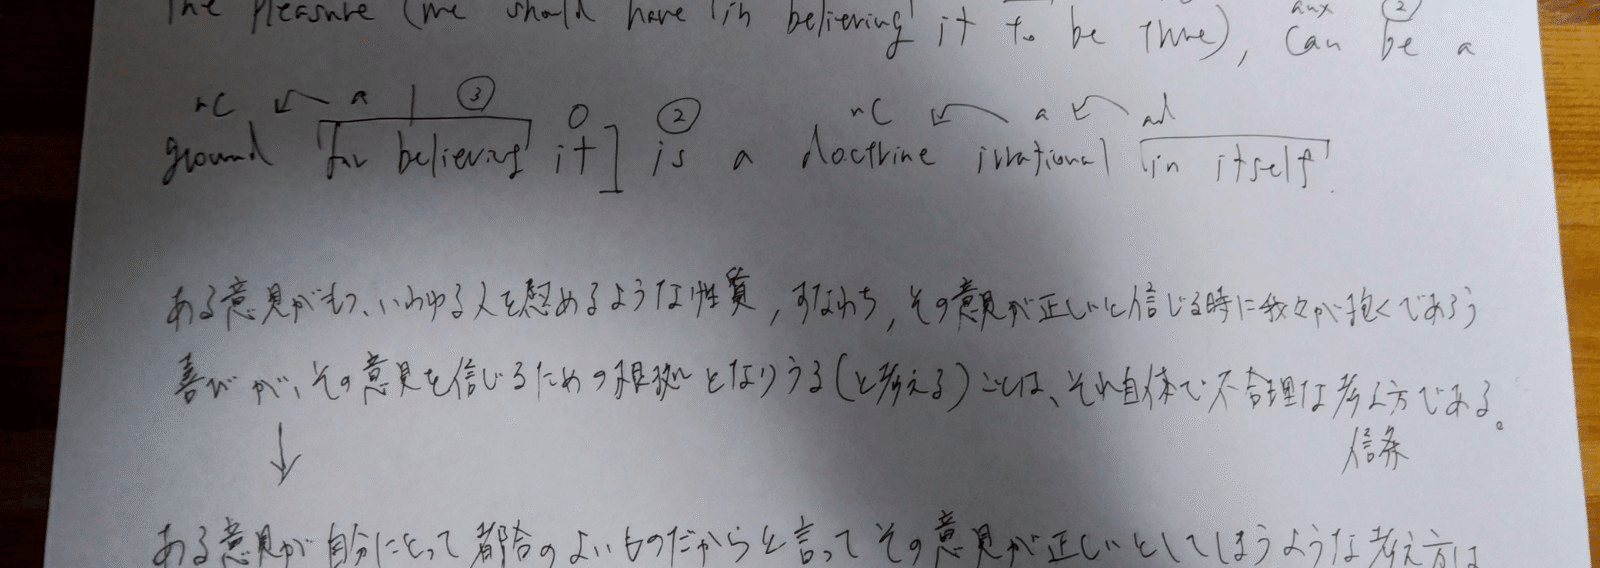 The pleasure (we should have [in believing] it to be true), can be a
aux ②
nC a ③ O ② nC a ad
ground [for believing] it] is a doctrine irrational [in itself].
ある意見がもつ、いわゆる人を慰めるような性質，すなわち，その意見が正しいと信じる時に我々が抱くであろう
喜びが、その意見を信じるための根拠となりうる(と考える)ことは、それ自体で不合理な考え方である。
信条
↓
ある意見が自分にとって都合のよいものだからと言ってその意見が正しいとしてしまうような考え方は